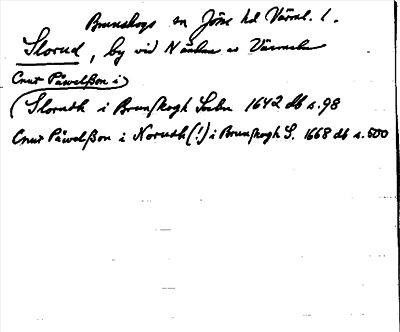 Brunskogs sn Jösse hd Värml. l.
Slorud, by vid Näsulven Värmeln
Cnut Påwelßon i
Sloruth i Brunskogh Sochn 1642 db s. 98
Cnut Påwelßon i Noruth (!) i Brunskogh S. 1668 db s. 500